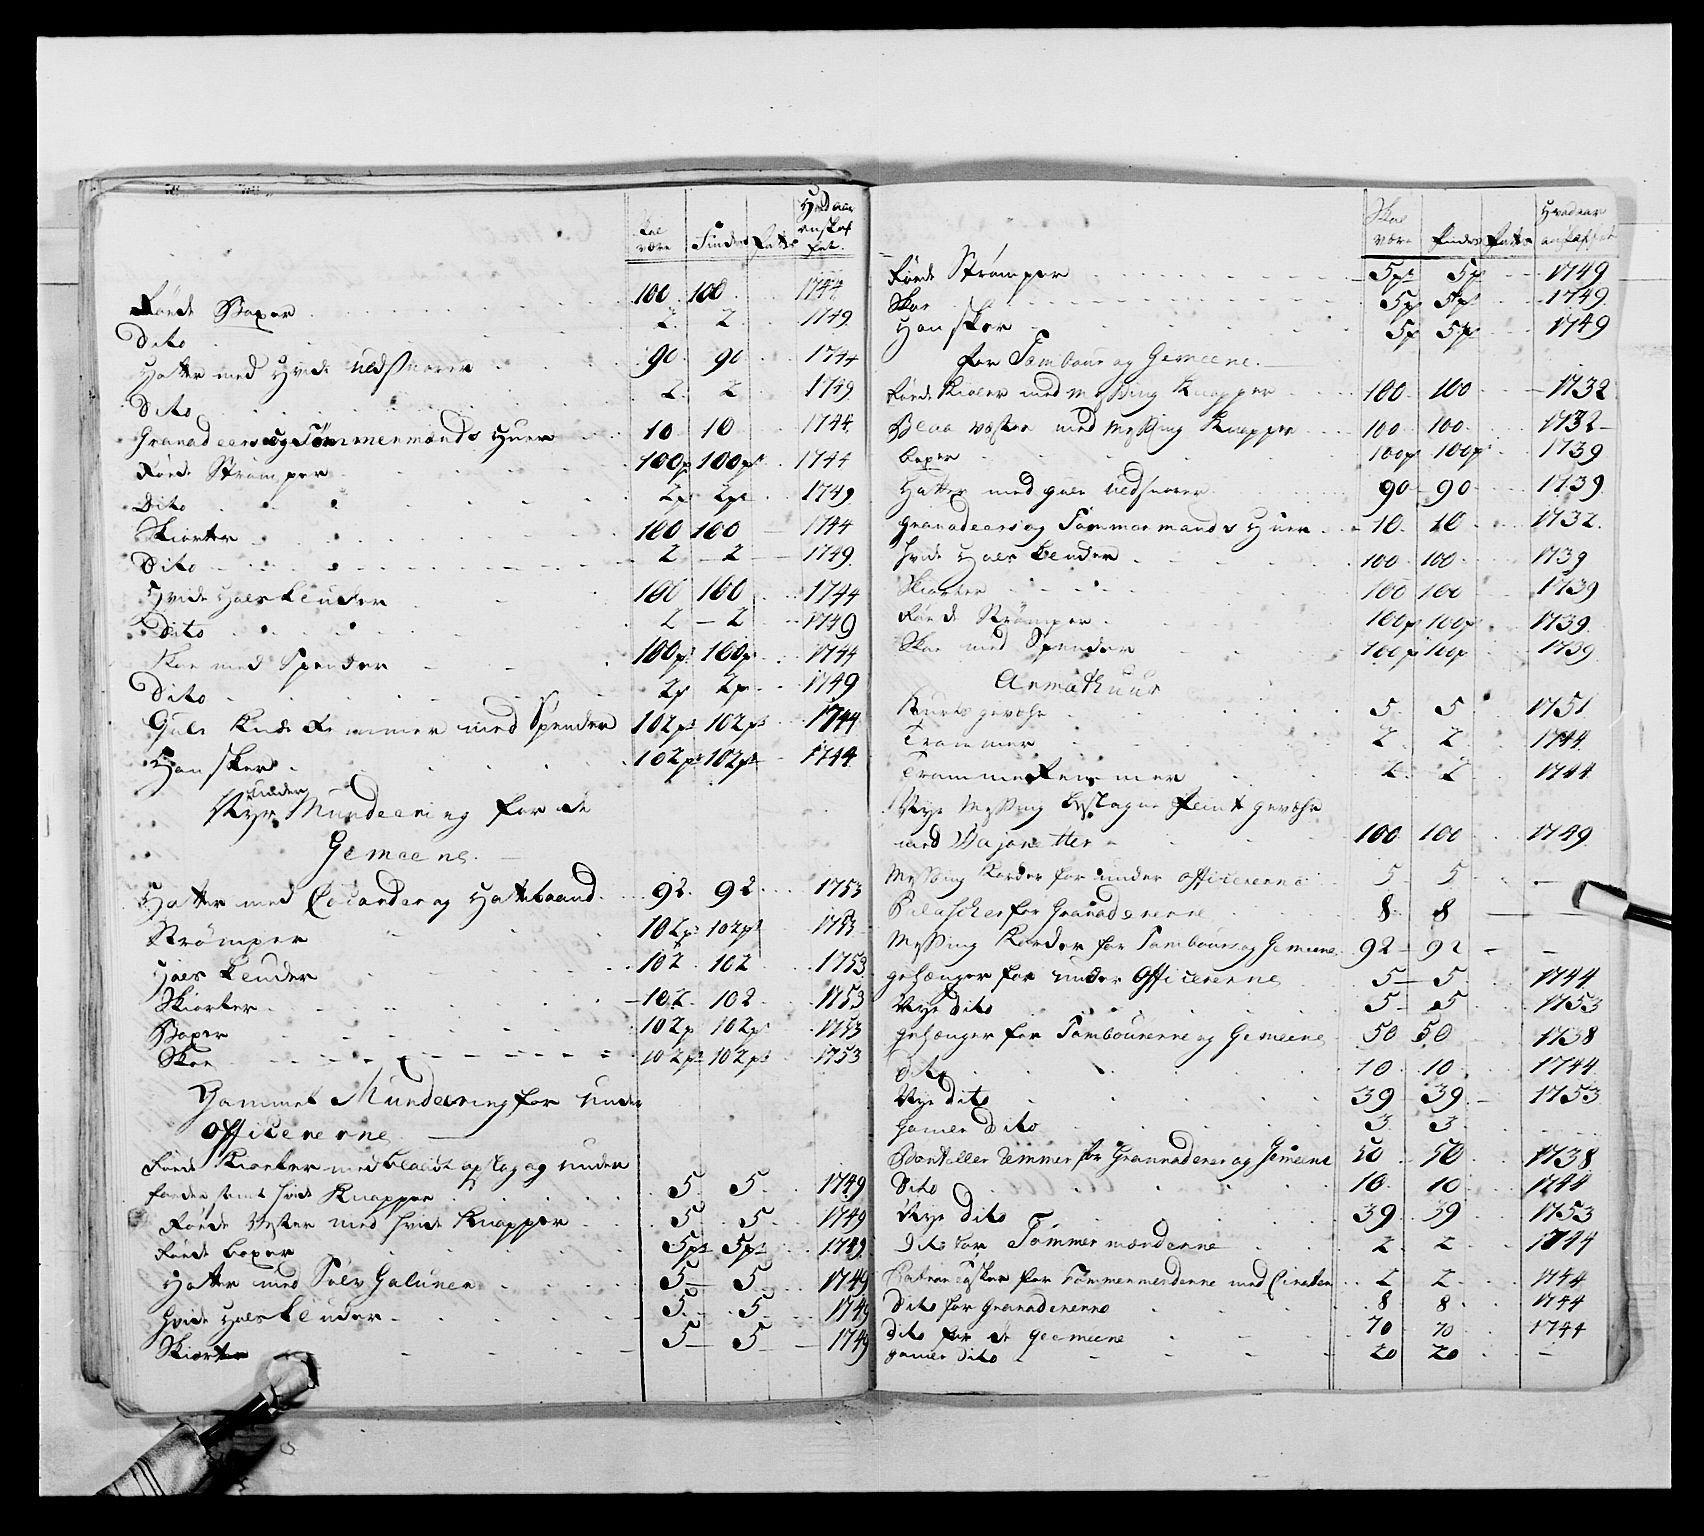 Skal være Findes Fattes Hvad aar anskaffet
Røde Boxer 100 100 1744
Dito 2 2 1749
Hatter med Hvide uldsnorer 90 90 1744
Dito 2 2 1749
Granadeers og Tømmermands Huer 10 10 1744
Røde Strømper 100p 100p 1744
Dito 2p 2p 1749
Skiorter 100 100 1744
Dito 2 2 1749
Hvide Halskluder 100 100 1744
Dito 2 2 1749
Skoe med Spender 100p 100p 1744
Dito 2p 2p 1749
Gule Knæ Remmer med Spender 102p 102p 1744
Handsker 102p 102p 1744
Nye Mundeering for de
Gemeene
Hatter med Cocarder og Hattebaand 92 92 1753
Strømper 102p 102p 1753
Halskluder 102 102 1753
Skiorter 102 102 1753
Boxer 102p 102p 1753
Skoe 102p 102p 1753
Gammel Mundeering for under
Officererne
Røde Kiorler med blaat opslag og under
foeder samt hvide Knapper 5 5 1749
Røde Vester med hvide Knapper 5 5 1749
Røde boxer 5p 5p 1749
Hatter med Sølv Galuner 5 5 1749
Hvide Halskluder 5 5 1749
Skiorter 5 5 1749
Skal være Findes Fattes Hvad aar anskaffet
Røde Strømper 5p 5p 1749
Skoe 5p 5p 1749
Handsker 5p 5p 1749
for Tambour og Gemeene
Røde Kioler med Messing Knapper 100 100 1732
Blaa Vester med Messing Knapper 100 100 1732
boxer 100p 100p 1739
Hatter med gule uldsnorer 90 90 1739
Granadeers og Tømmermands Huer 10 10 1732
Hvide Halskluder 100 100 1739
Skiorter 100 100 1739
Røde Strømper 100p 100p 1739
Skoe med Spender 100p 100p 1739
Armatuur
Kurts gevæhr 5 5 1751
Trommer 2 2 1744
Tromme Remmer 2 2 1744
Nye Messing beslagne Flint gevæhr
med Bajonetter 100 100 1749
Messing Korder for under officererne 5 5
for Granadererne 8 8
Messing Korder for Tambours og Gemeene 92 92
gehænger for under Officererne 5 5 1744
Nye dito 5 5 1753
gehænger for Tambourerne og Gemeene 50 50 1738
dito 10 10 1744
Nye dito 39 39 1753
gamle dito 3 3
Remmer for Granaderer og Gemeene 50 50 1738
Dito 10 10 1744
Nye dito 39 39 1753
Dito for Tømmermænderne 2 2 1744
Patrontasker for Tømmermenderne med 2 2 1744
Dito for Granadererne 8 8 1744
dito for de Gemeene 70 70 1744
gamle dito 20 20